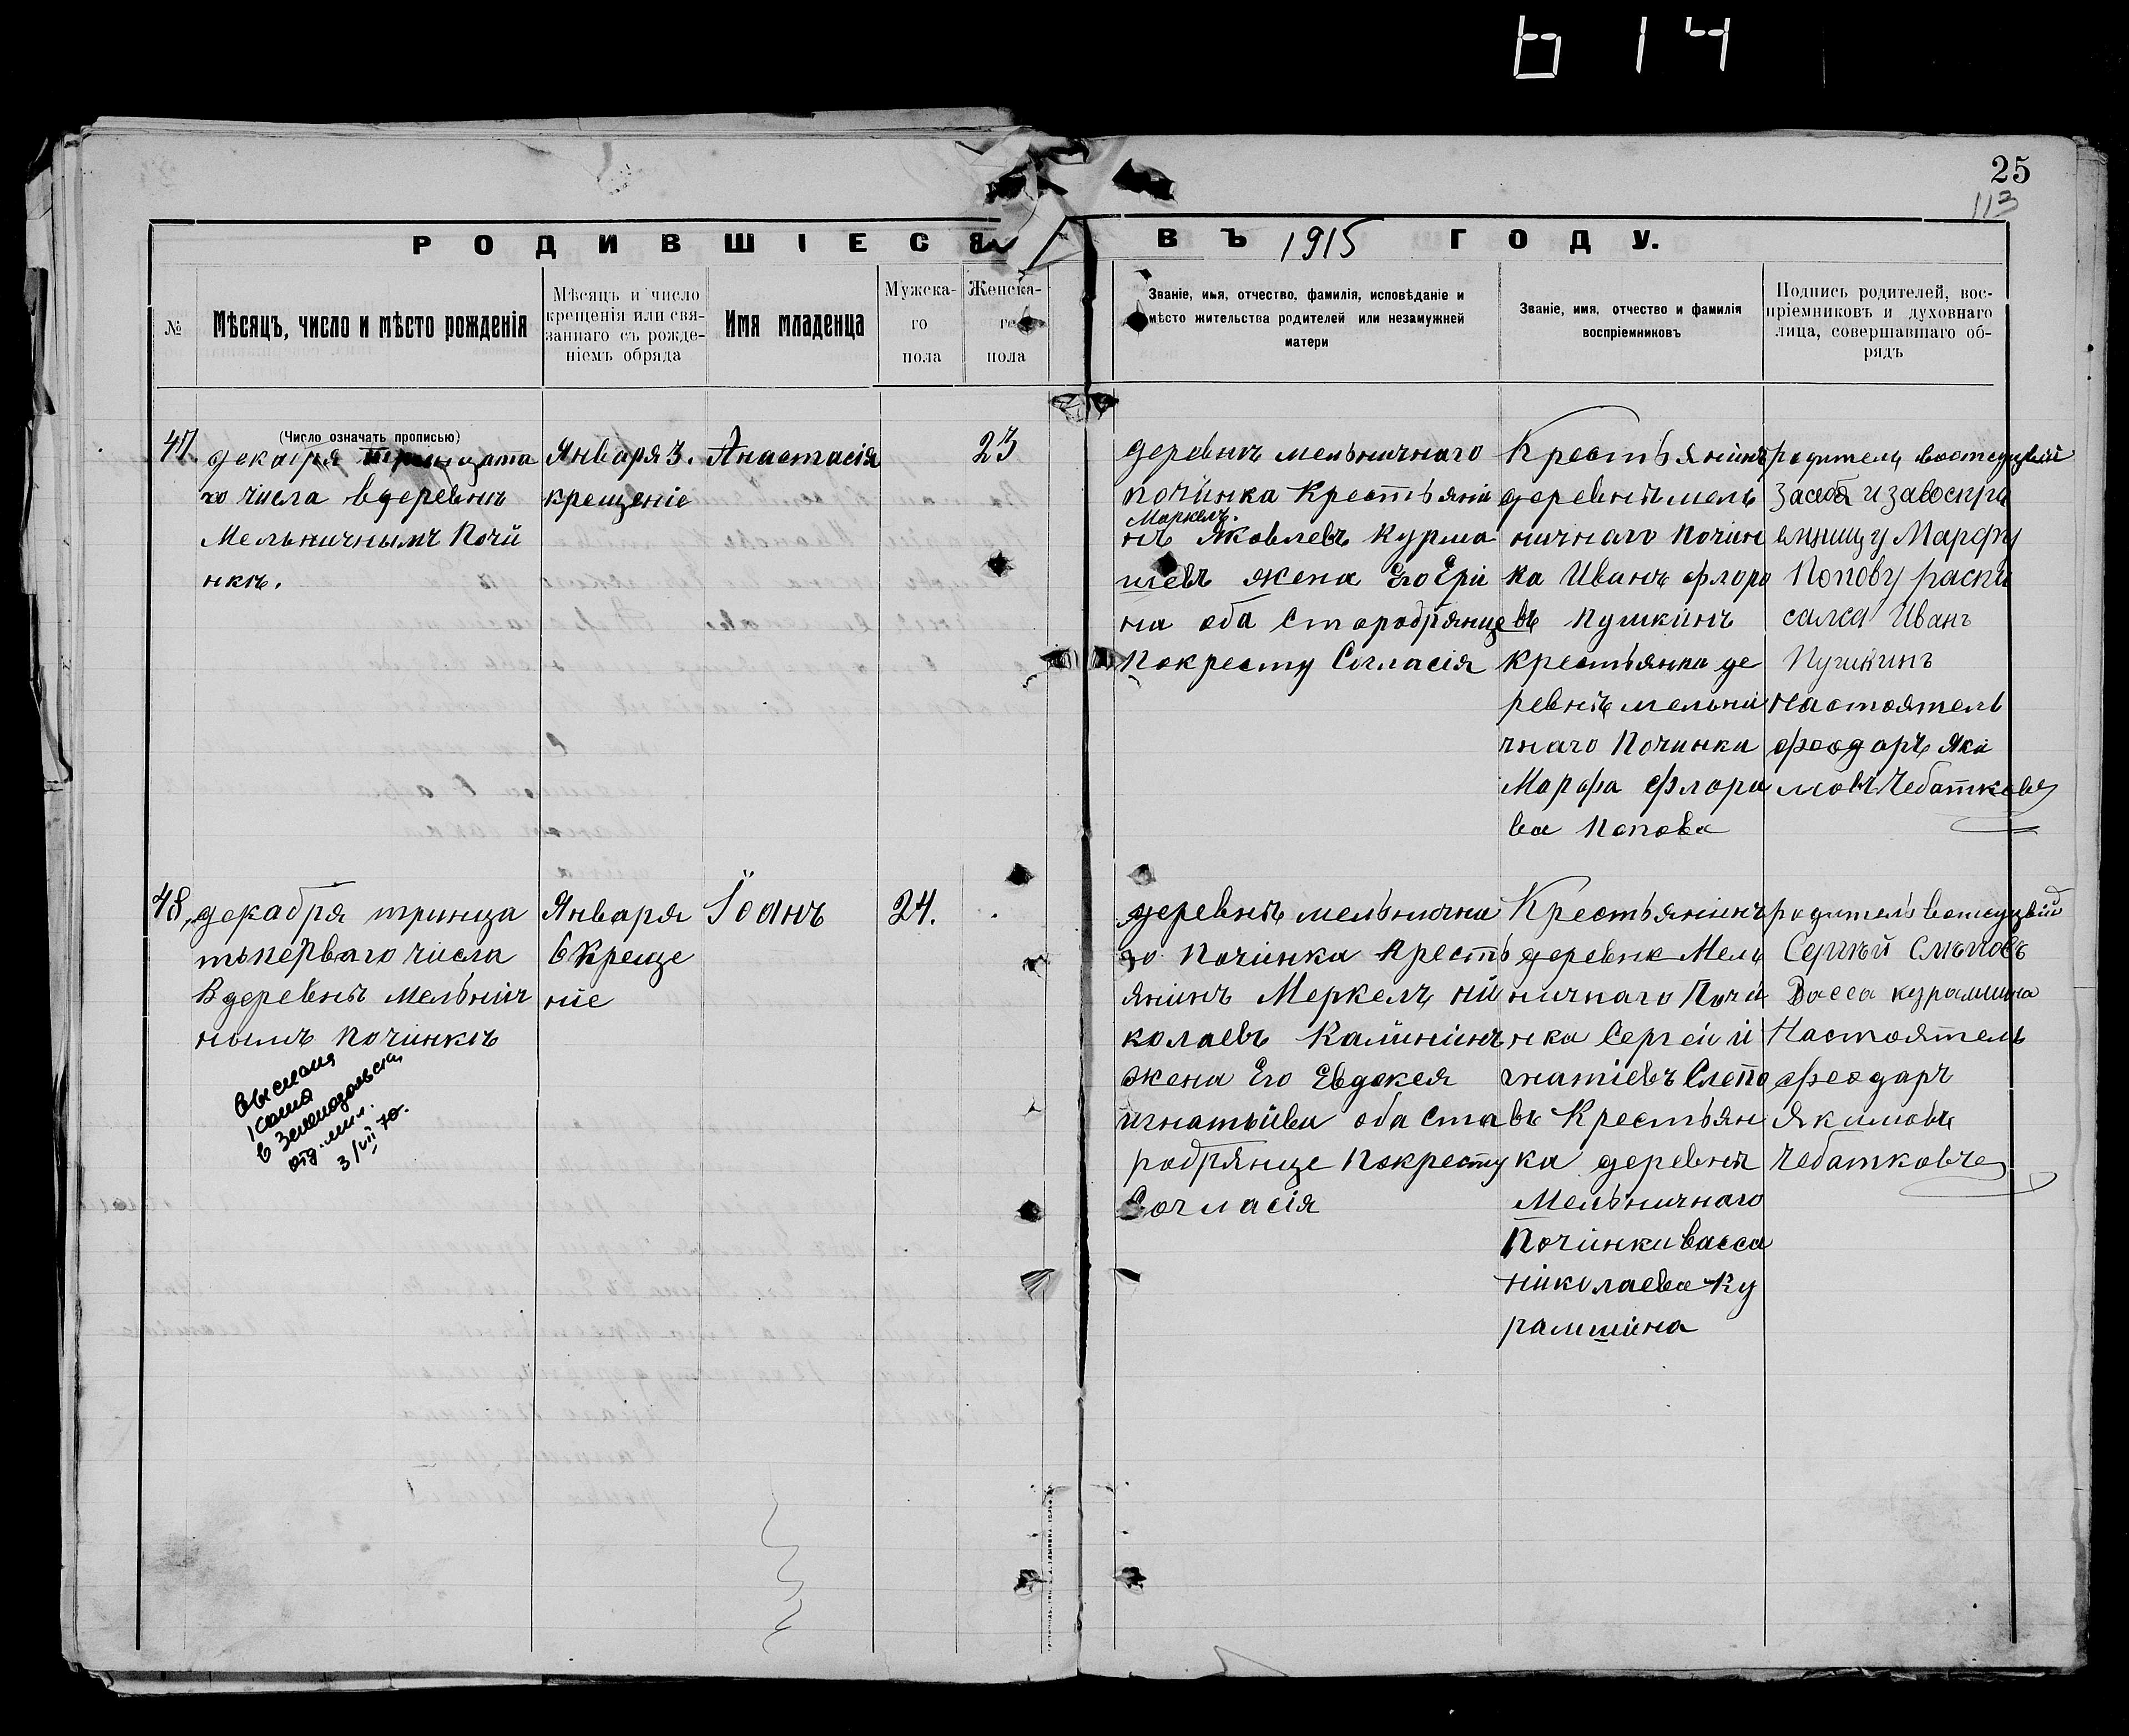 614
25
113
РОДИВШІЕСЯ ВЪ 1915 ГОДУ.
№
Мѣсяцъ, число и мѣсто рожденія
Мѣсяцъ и число
крещенія или свя-
заннаго съ рожде-
ніемъ обряда
Имя младенца
Мужска-
го
пола
Женска-
го
пола
Званіе, имя, отчество, фамилія, исповѣданіе и
мѣсто жительства родителей или незамужней
матери
Званіе, имя, отчество и фамилія
воспріемниковъ
Подпись родителей, вос-
пріемниковъ и духовнаго
лица, совершавшаго об-
рядъ
(Число означать прописью)
47.
декабря тринцата
го числа вдеревнѣ
Мельничнымъ Почи
нкѣ.
Января 3.
крещеніе
Анастасія
23
деревнѣ мельничнаго
починка Крестьяни
Маркелъ.
нъ Яковлевъ Курма
шевъ жена Его Ери
на оба Стародрянце
Покресту Согласія
Крестьянинъ
деревнѣ мель
ничнаго Почин
ка Иванъ флоро
въ Пушкинъ
крестьянка де
ревнѣ мельни
чнаго Починка
Марфа Флори
ва Попова
родителц
засебя и завоспри
емницу Марфу
Попову распи
салса Иванъ
Пушкинъ
Настоятель
феодаръ Яки
мовъ Чебатковъ
48.
декабря тринца
тьперваго числа
В деревнѣ Мельнич
нымъ починкѣ
Января
6 Креще
ние
Іоанъ
24.
деревнѣ мельнична
го Починка Кресть
янинъ Меркелъ Ни
колаевъ Калининъ
жена Его Евдокея
игнатьива оба Ста
родрянце Покресту
Согласія
Крестьянинъ
деревне Мель
ничнаго Почи
нка Сергей и
гнатіевъ Слепо
въ Крестьян
ка деревня
Мельничнаго
Починки васса
николаева Ку
рамшина
родитель
Сергѣй Слѣповъ
Васса курамшина
Настоятель
феодаръ
Якимовъ
Чебатковъ
выслана
копия
в Зеленодольски
отд. мил.
3/VII 70.